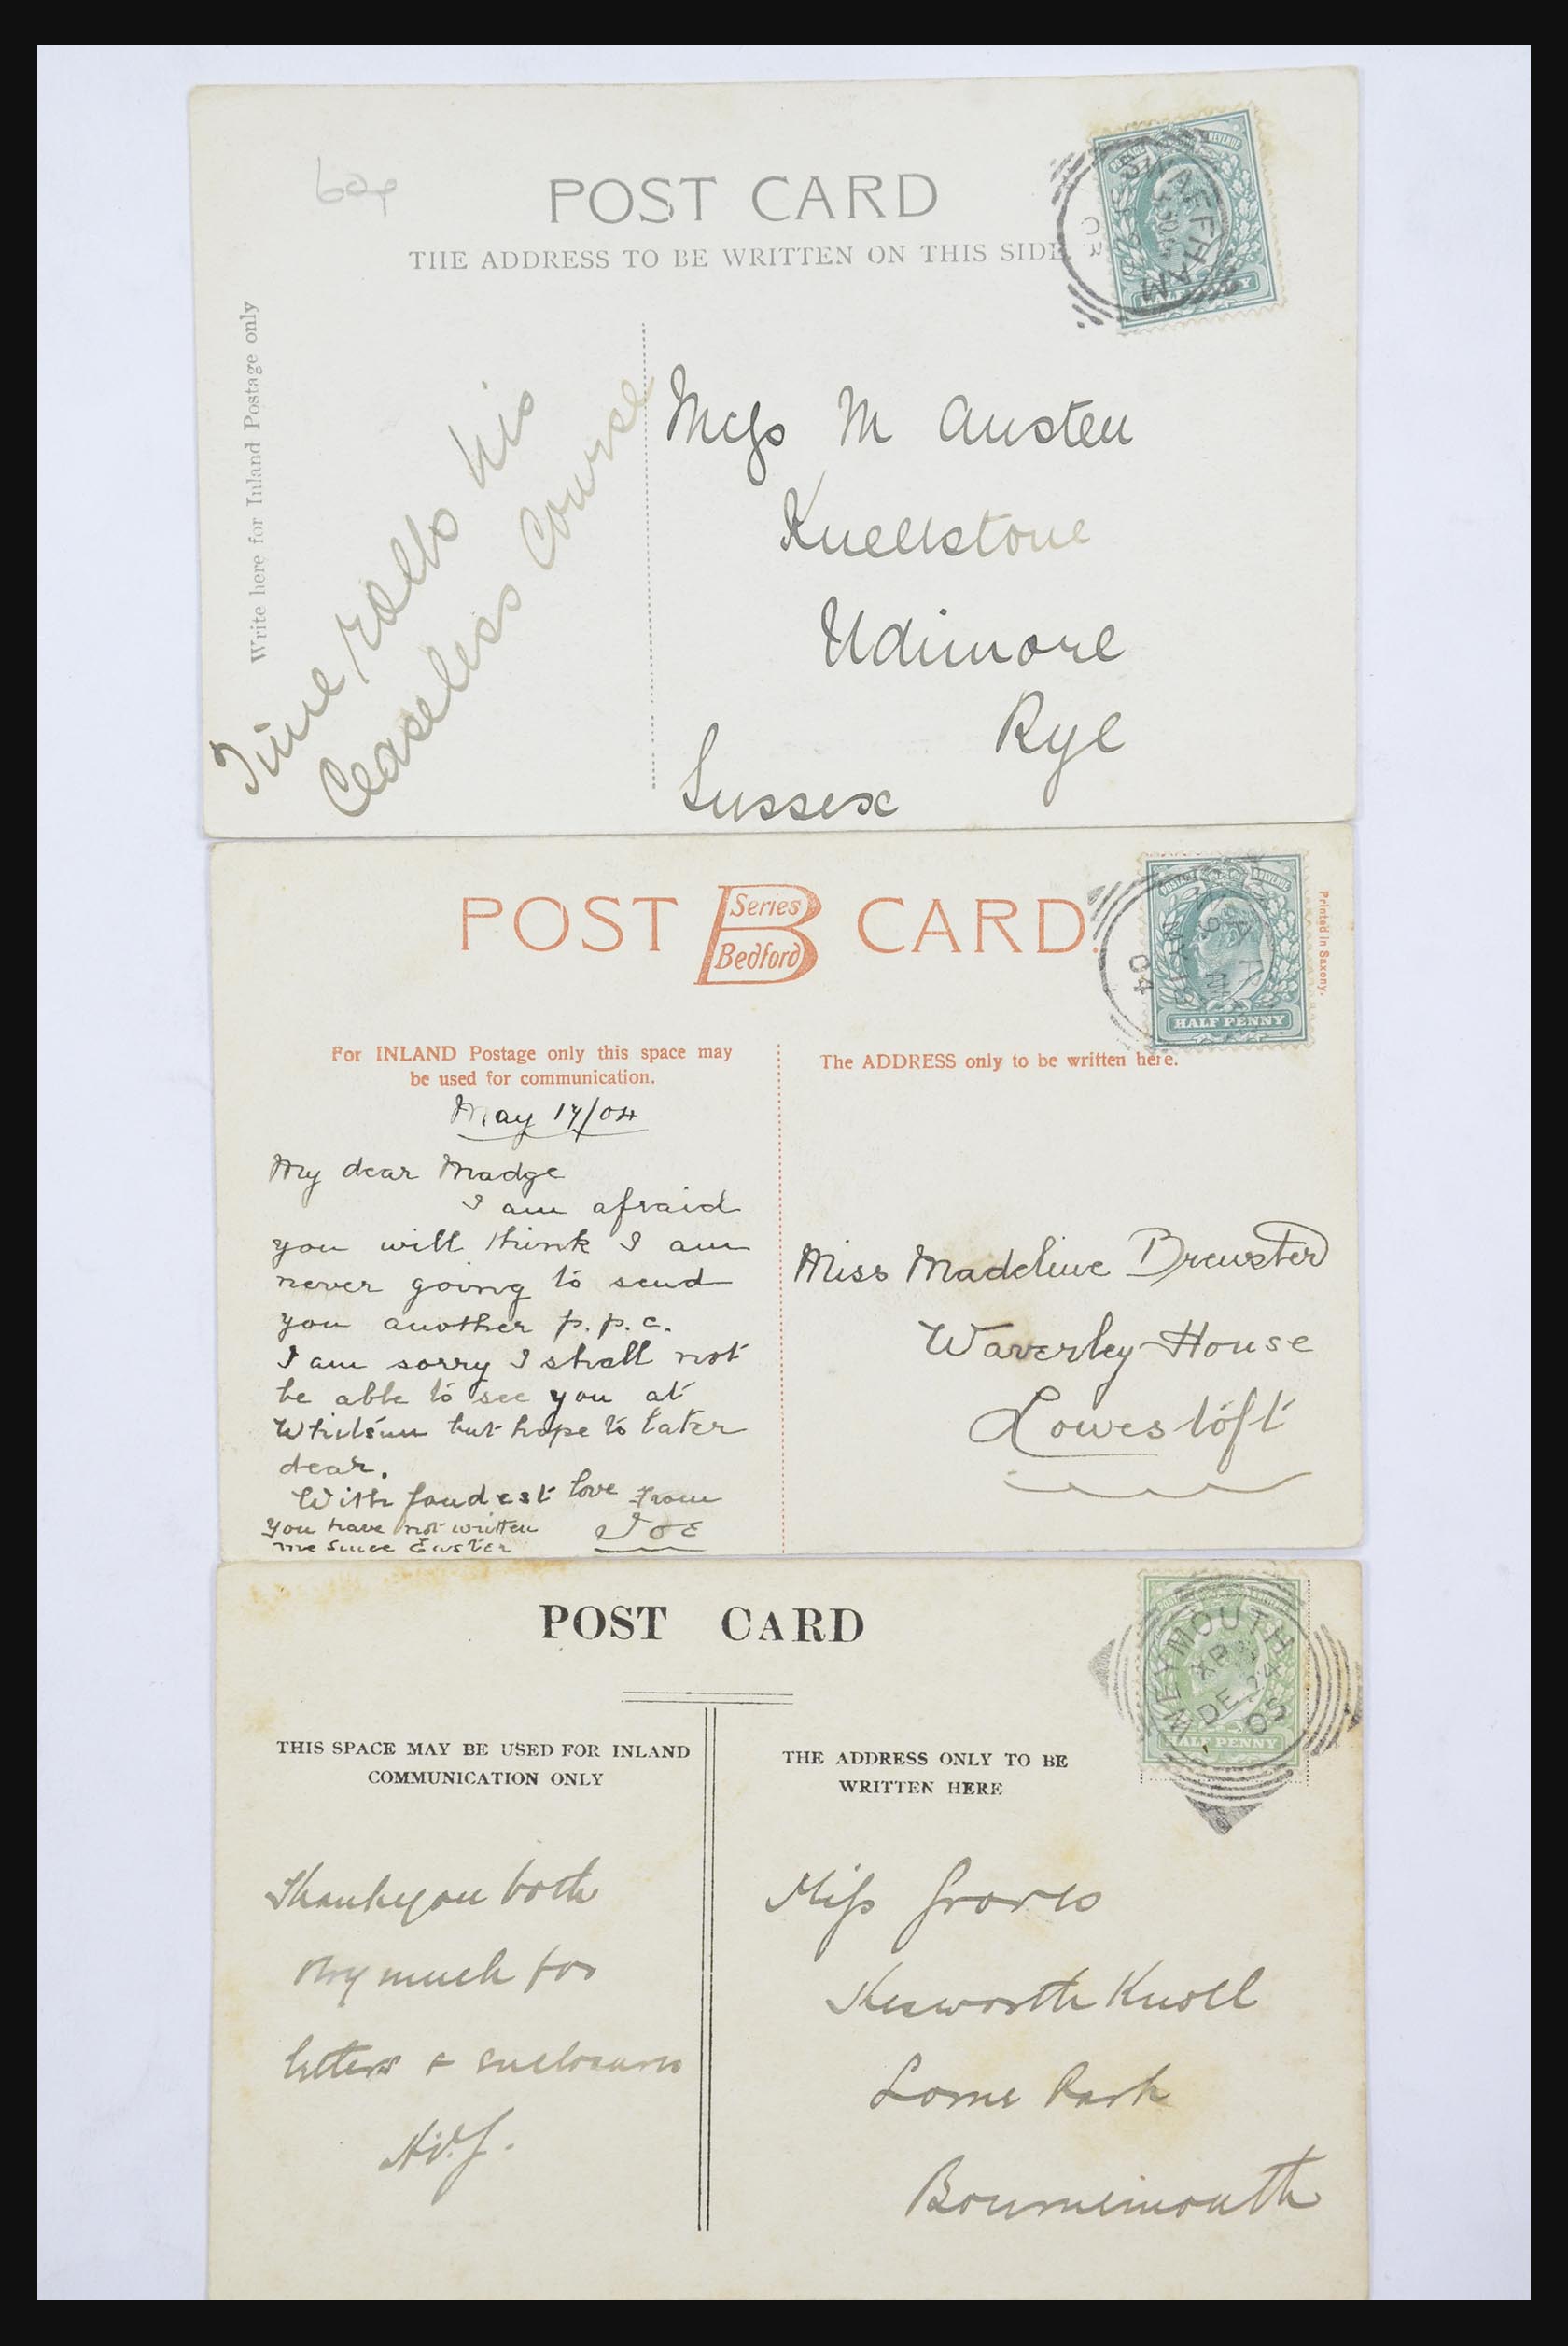 60p
POST CARD
THE ADDRESS TO BE WRITTEN ON THIS SIDE.
SWAFFHAM
HALF PENNY
Write here for Inland Postage only
Time rolls his
Ceaseless Course
Miss M Austen
Knellstone
Udimore
Rye
Sussex
POST Series B Bedford CARD.
MY 18
04
HALF PENNY
Printed in Saxony.
For INLAND Postage only this space may
be used for communication.
The ADDRESS only to be written here.
May 17/04
My dear Madge
I am afraid
you will think I am
never going to send
you another p.p.c.
I am sorry I shall not
be able to see you at
Whitsun but hope to later
dear.
With fondest love from
Joe
You have not written
me since Easter
Miss Madeline Brewster
Waverley House
Lowestoft
POST CARD
WEYMOUTH
DE 24
05
HALF PENNY
THIS SPACE MAY BE USED FOR INLAND
COMMUNICATION ONLY
THE ADDRESS ONLY TO BE
WRITTEN HERE
Thank you both
very much for
letters & enclosures
Miss Groves
Kesworth Knoll
Lorne Park
Bournemouth